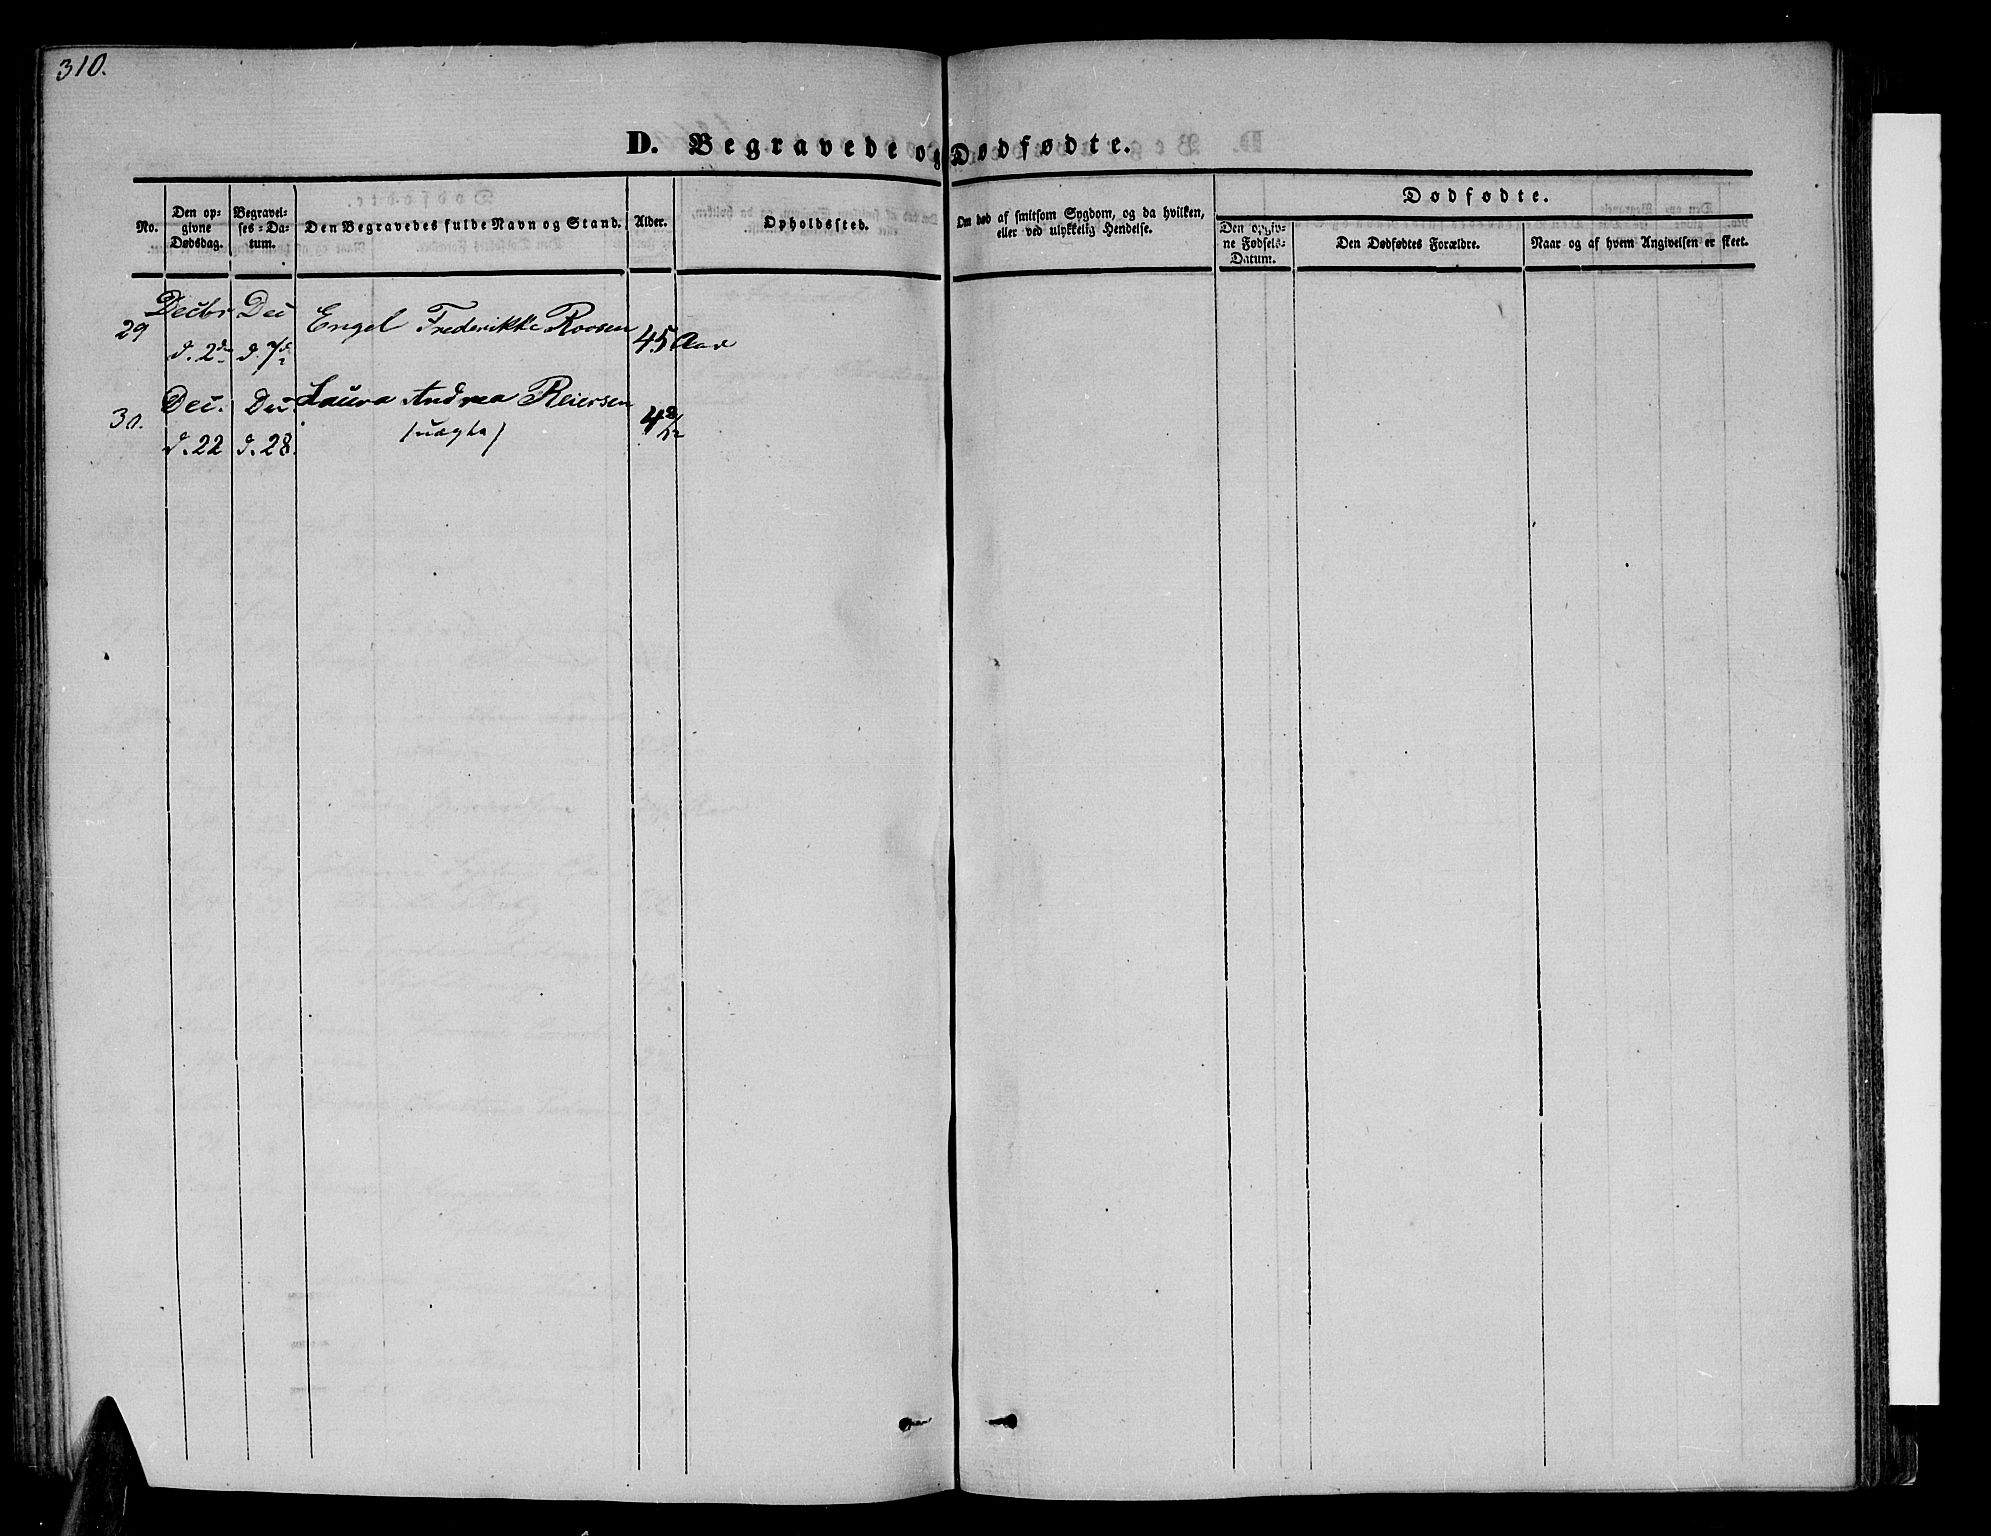 310.
D. Begravede og Dødfødte.
No.
Den opgivne Dødsdag.
Begravelses-Datum.
Den Begravedes fulde Navn og Stand.
Alder.
Opholdssted.
Om død af smitsom Sygdom, og da hvilken,
eller ved ulykkelig Hendelse.
Dødfødte.
Den opgivne Fødsels-Datum.
Den Dødfødtes Forældre.
Naar og af hvem Angivelsen er skeet.
29 Decbr Dec Engel Frederikke Roosen 45 Aar
d. 2den d. 7de
30. Dec. Dec. Laura Andrea Reiersen 4 8/12
d. 22 d. 28. /uægte/